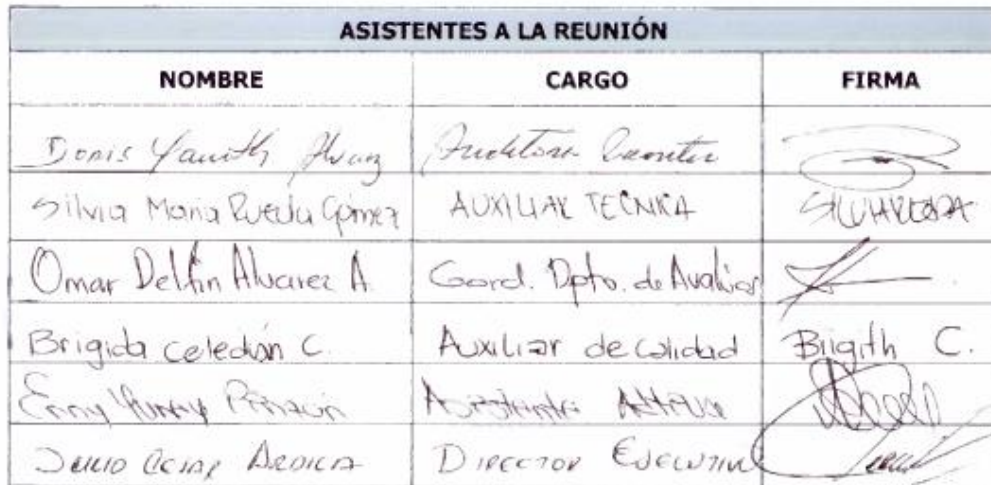 ASISTENTES A LA REUNIÓN
NOMBRE CARGO FIRMA
Doris Yanith Alvarez Auditora
Silvia Maria Rueda Gómez AUXILIAR TECNICA SILVIA RUEDA
Omar Delfin Alvarez A. Coord. Dpto. de Avalúos
Brigida Celedón C. Auxiliar de calidad Brigith C.
Enny Pinzón Asistente
Julio Cesar Ardila Director Ejecutivo